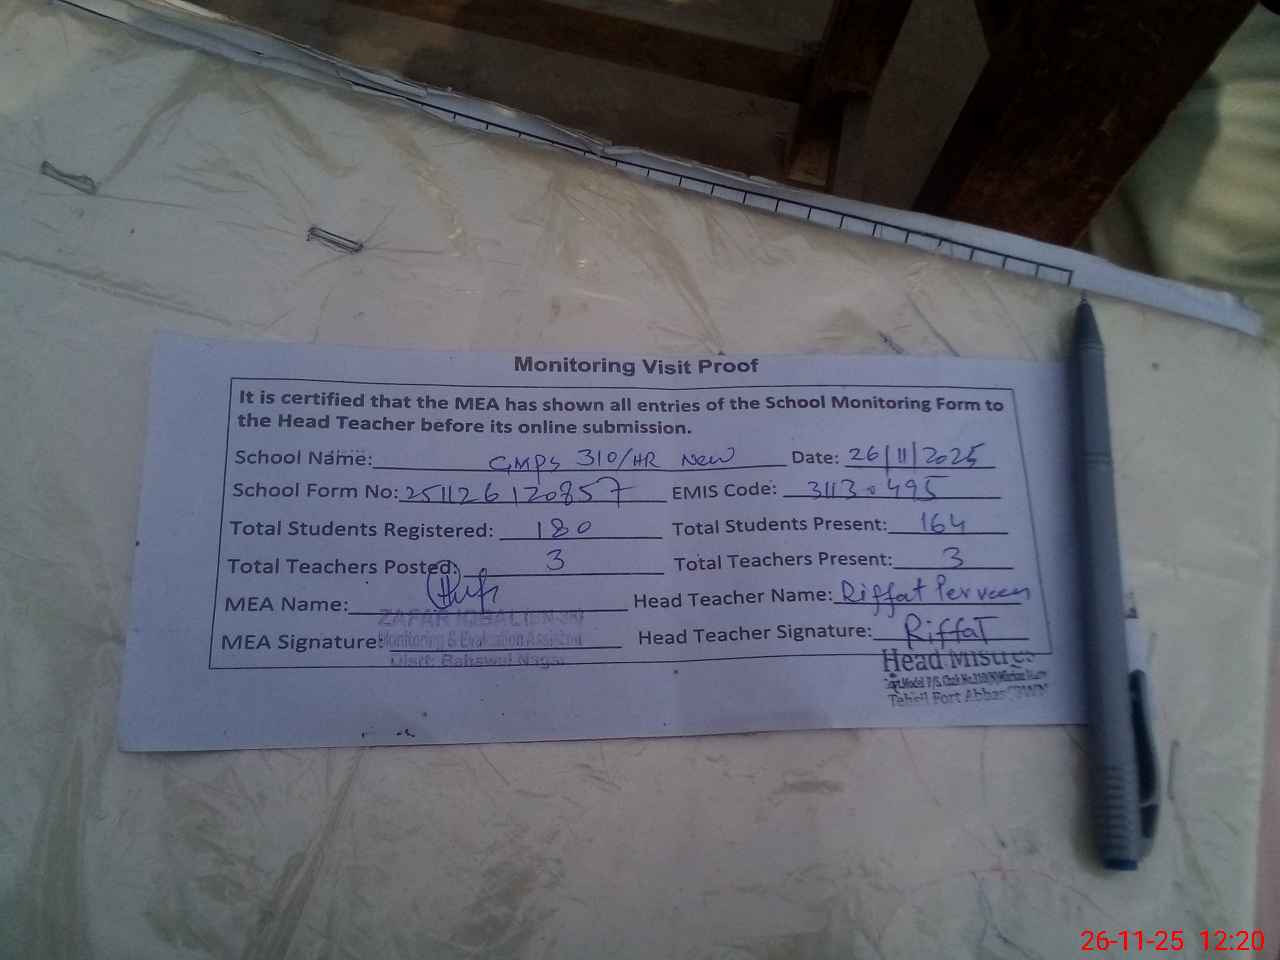 Monitoring Visit Proof
It is certified that the MEA has shown all entries of the School Monitoring Form to
the Head Teacher before its online submission.
School Name: GMPS 310/HR New Date: 26/11/2025
School Form No: 251126120857 EMIS Code: 31130495
Total Students Registered: 180 Total Students Present: 164
Total Teachers Posted: 3 Total Teachers Present: 3
MEA Name: Head Teacher Name: Riffat Perveen
ZAFAR IQBAL
MEA Signature: Head Teacher Signature: Riffat
Monitoring & Evaluation Assistant
Distt: Bahawal Nagar
Head Mistress
Model P/S. Chak No.
Tehsil Fort Abbas
26-11-25 12:20